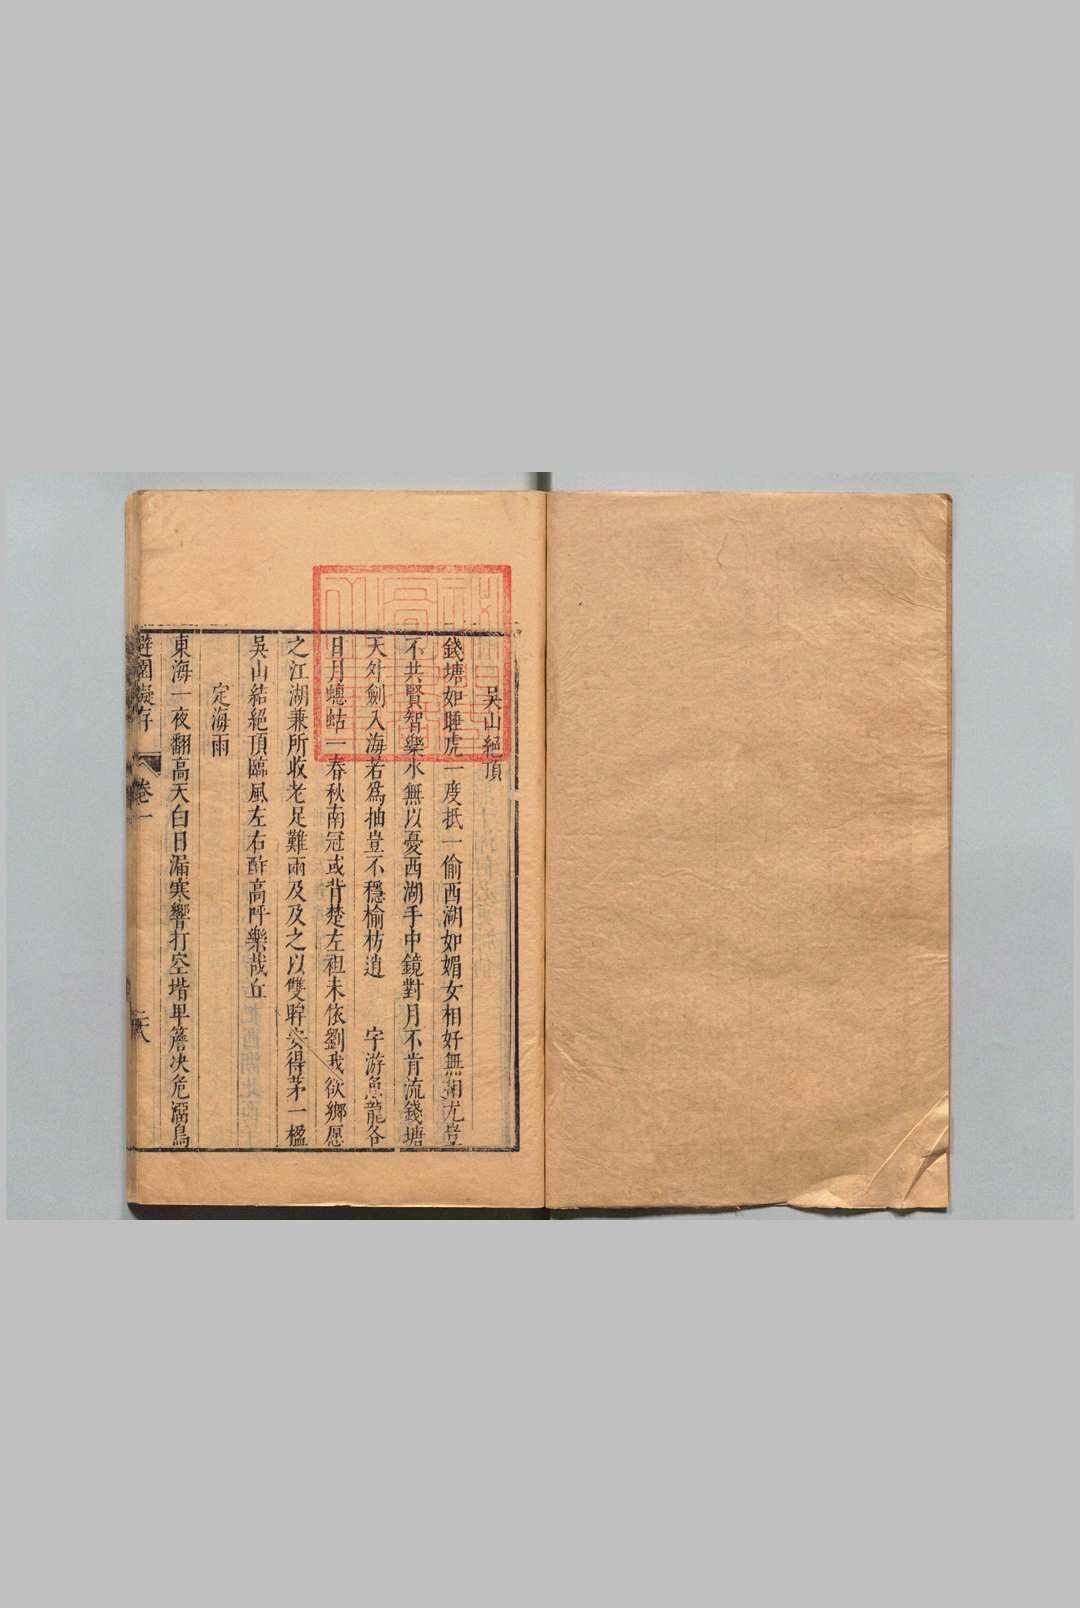 吳山絕頂
錢塘如睡虎一度抵一偷西湖如媚女相好無相尤豈
不共賢智樂水無以憂西湖手中鏡對月不肯流錢塘
天外劍入海若為抽豈不穩榆枋逍 字游魚龍各
日月蟪蛄一春秋南冠或背楚左袒未依劉我欲鄉愿
之江湖兼所收老足難兩及及之以雙眸安得茅一楹
吳山結絕頂臨風左右酢高呼樂哉丘
定海雨
東海一夜翻高天白日漏寒響打空堦卑簷决危溜鳥
避園擬存 卷一